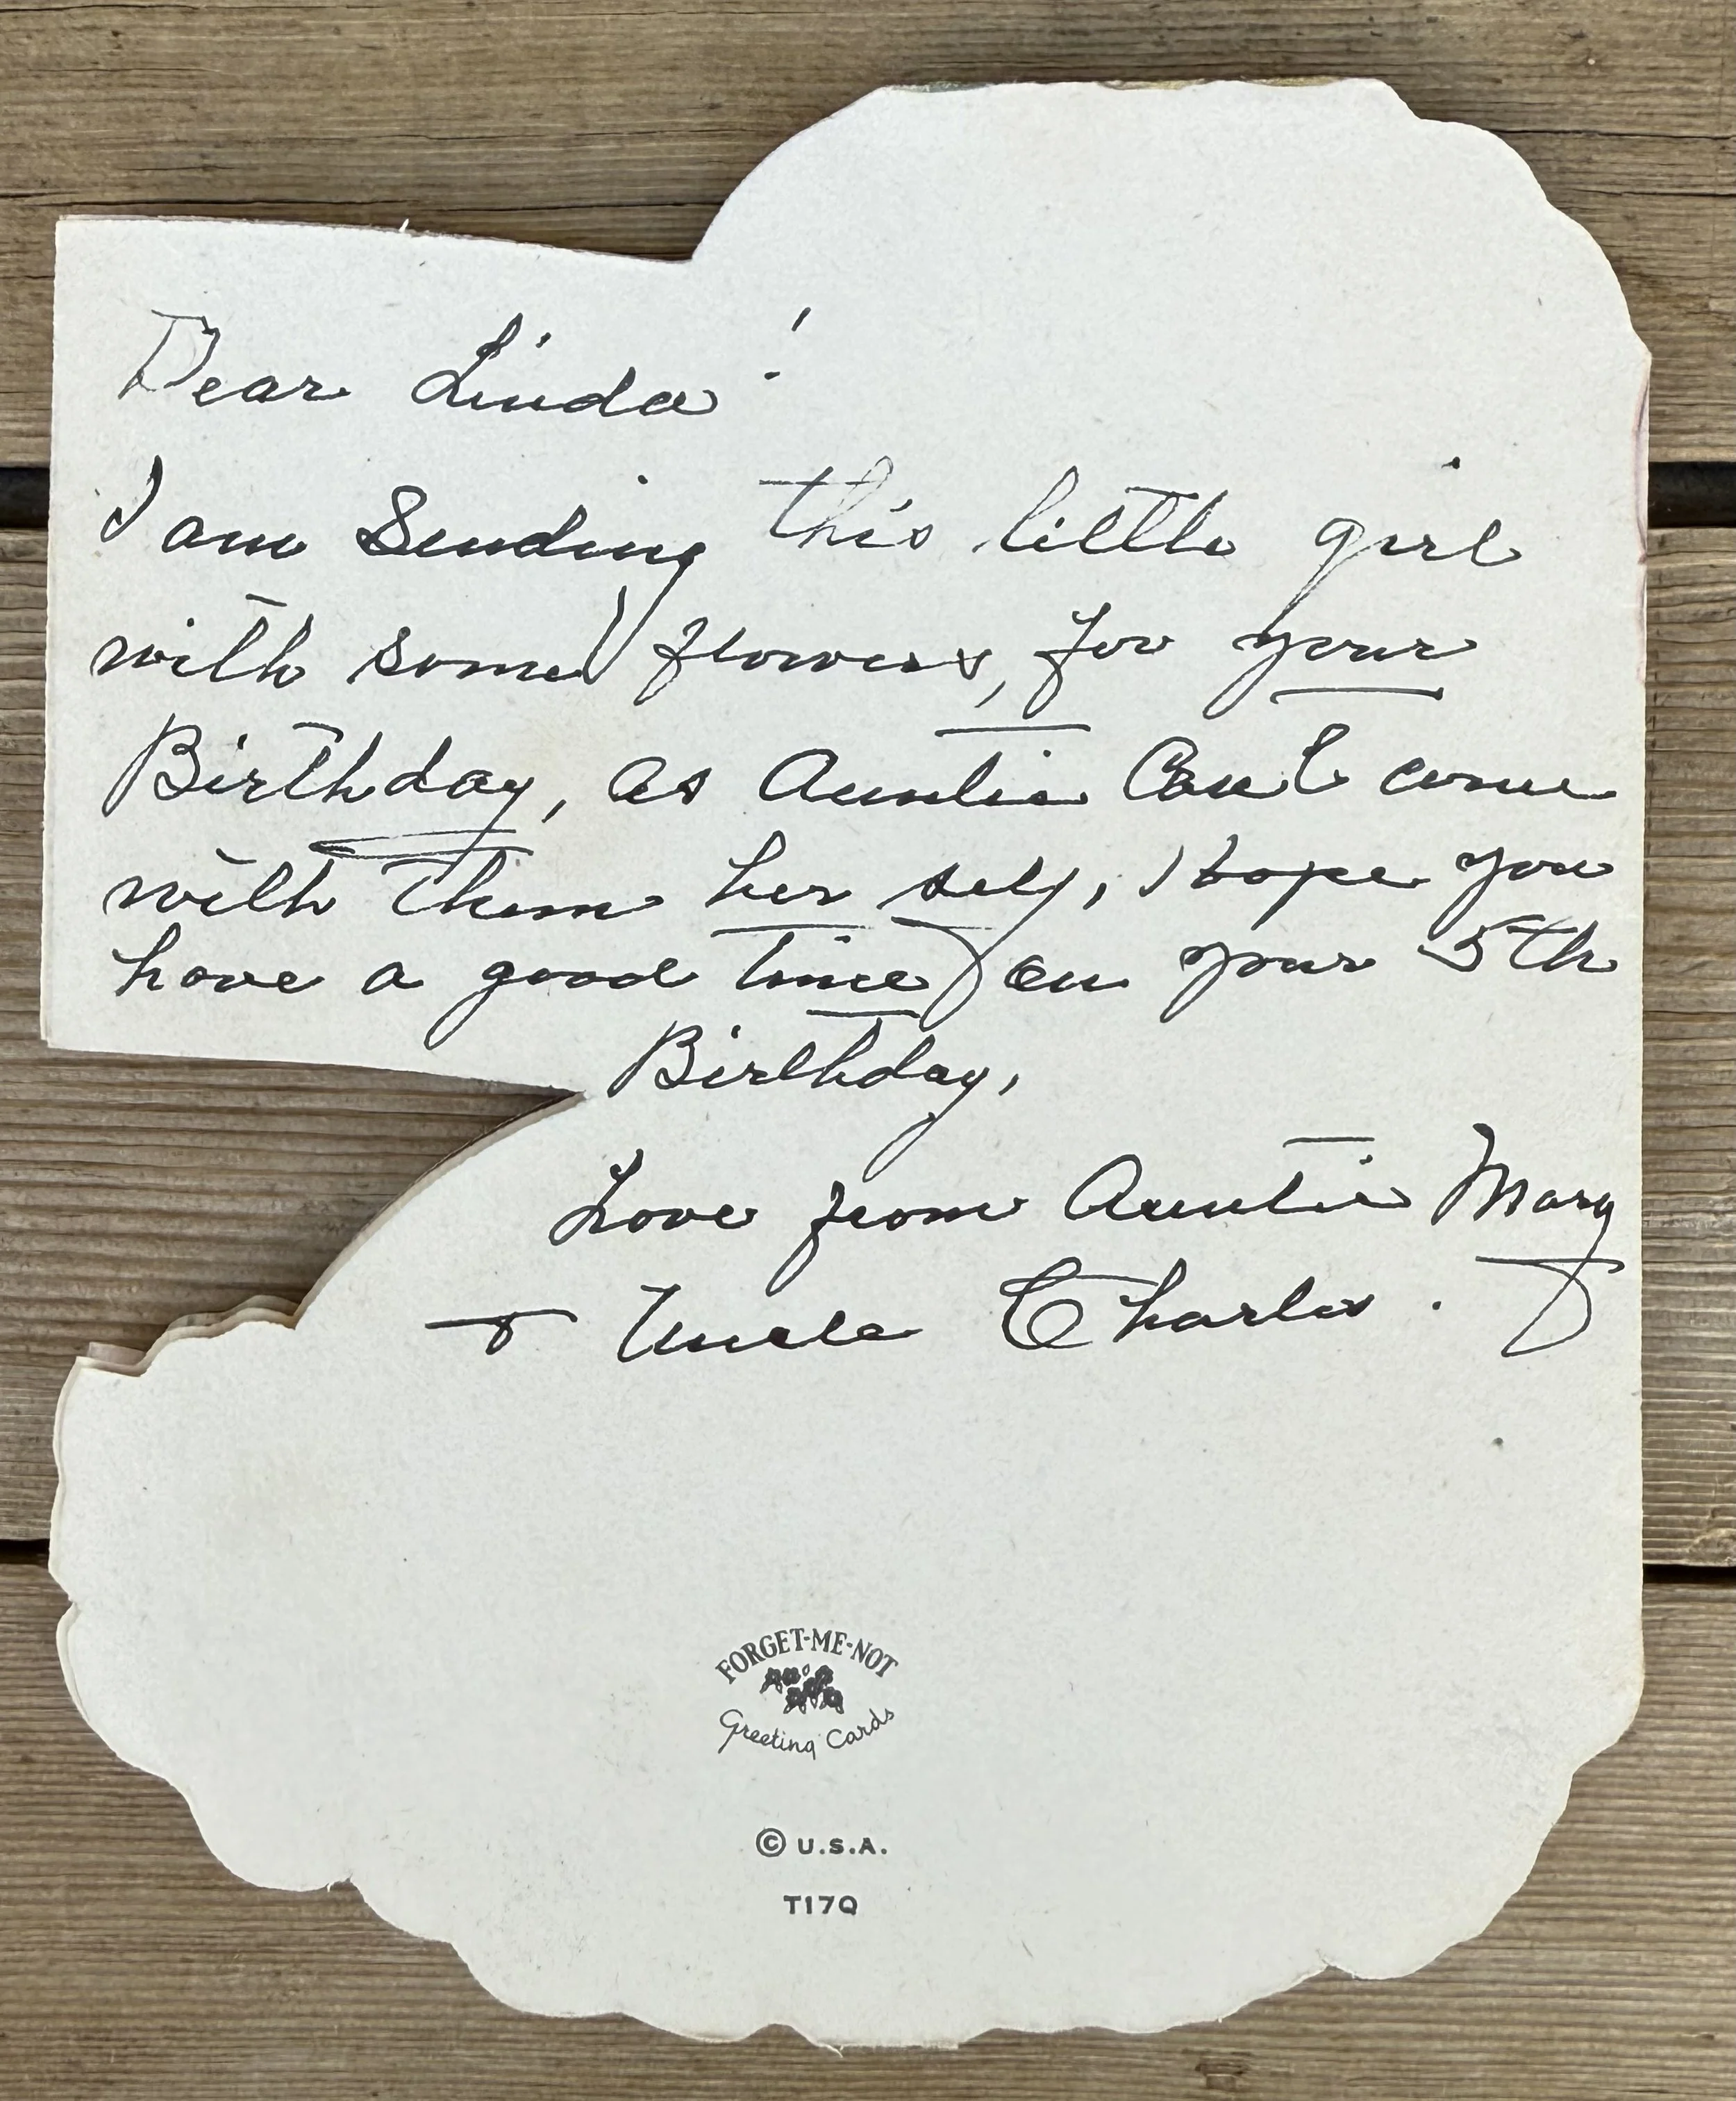 Dear Linda!
I am Sending this little girl
with some flowers, for your
Birthday, as Auntie Can't come
with them her self, I hope you
have a good time on your 5th
Birthday,
Love from Auntie Mary
& Uncle Charles.
FORGET-ME-NOT
Greeting Cards
© U.S.A.
T17Q